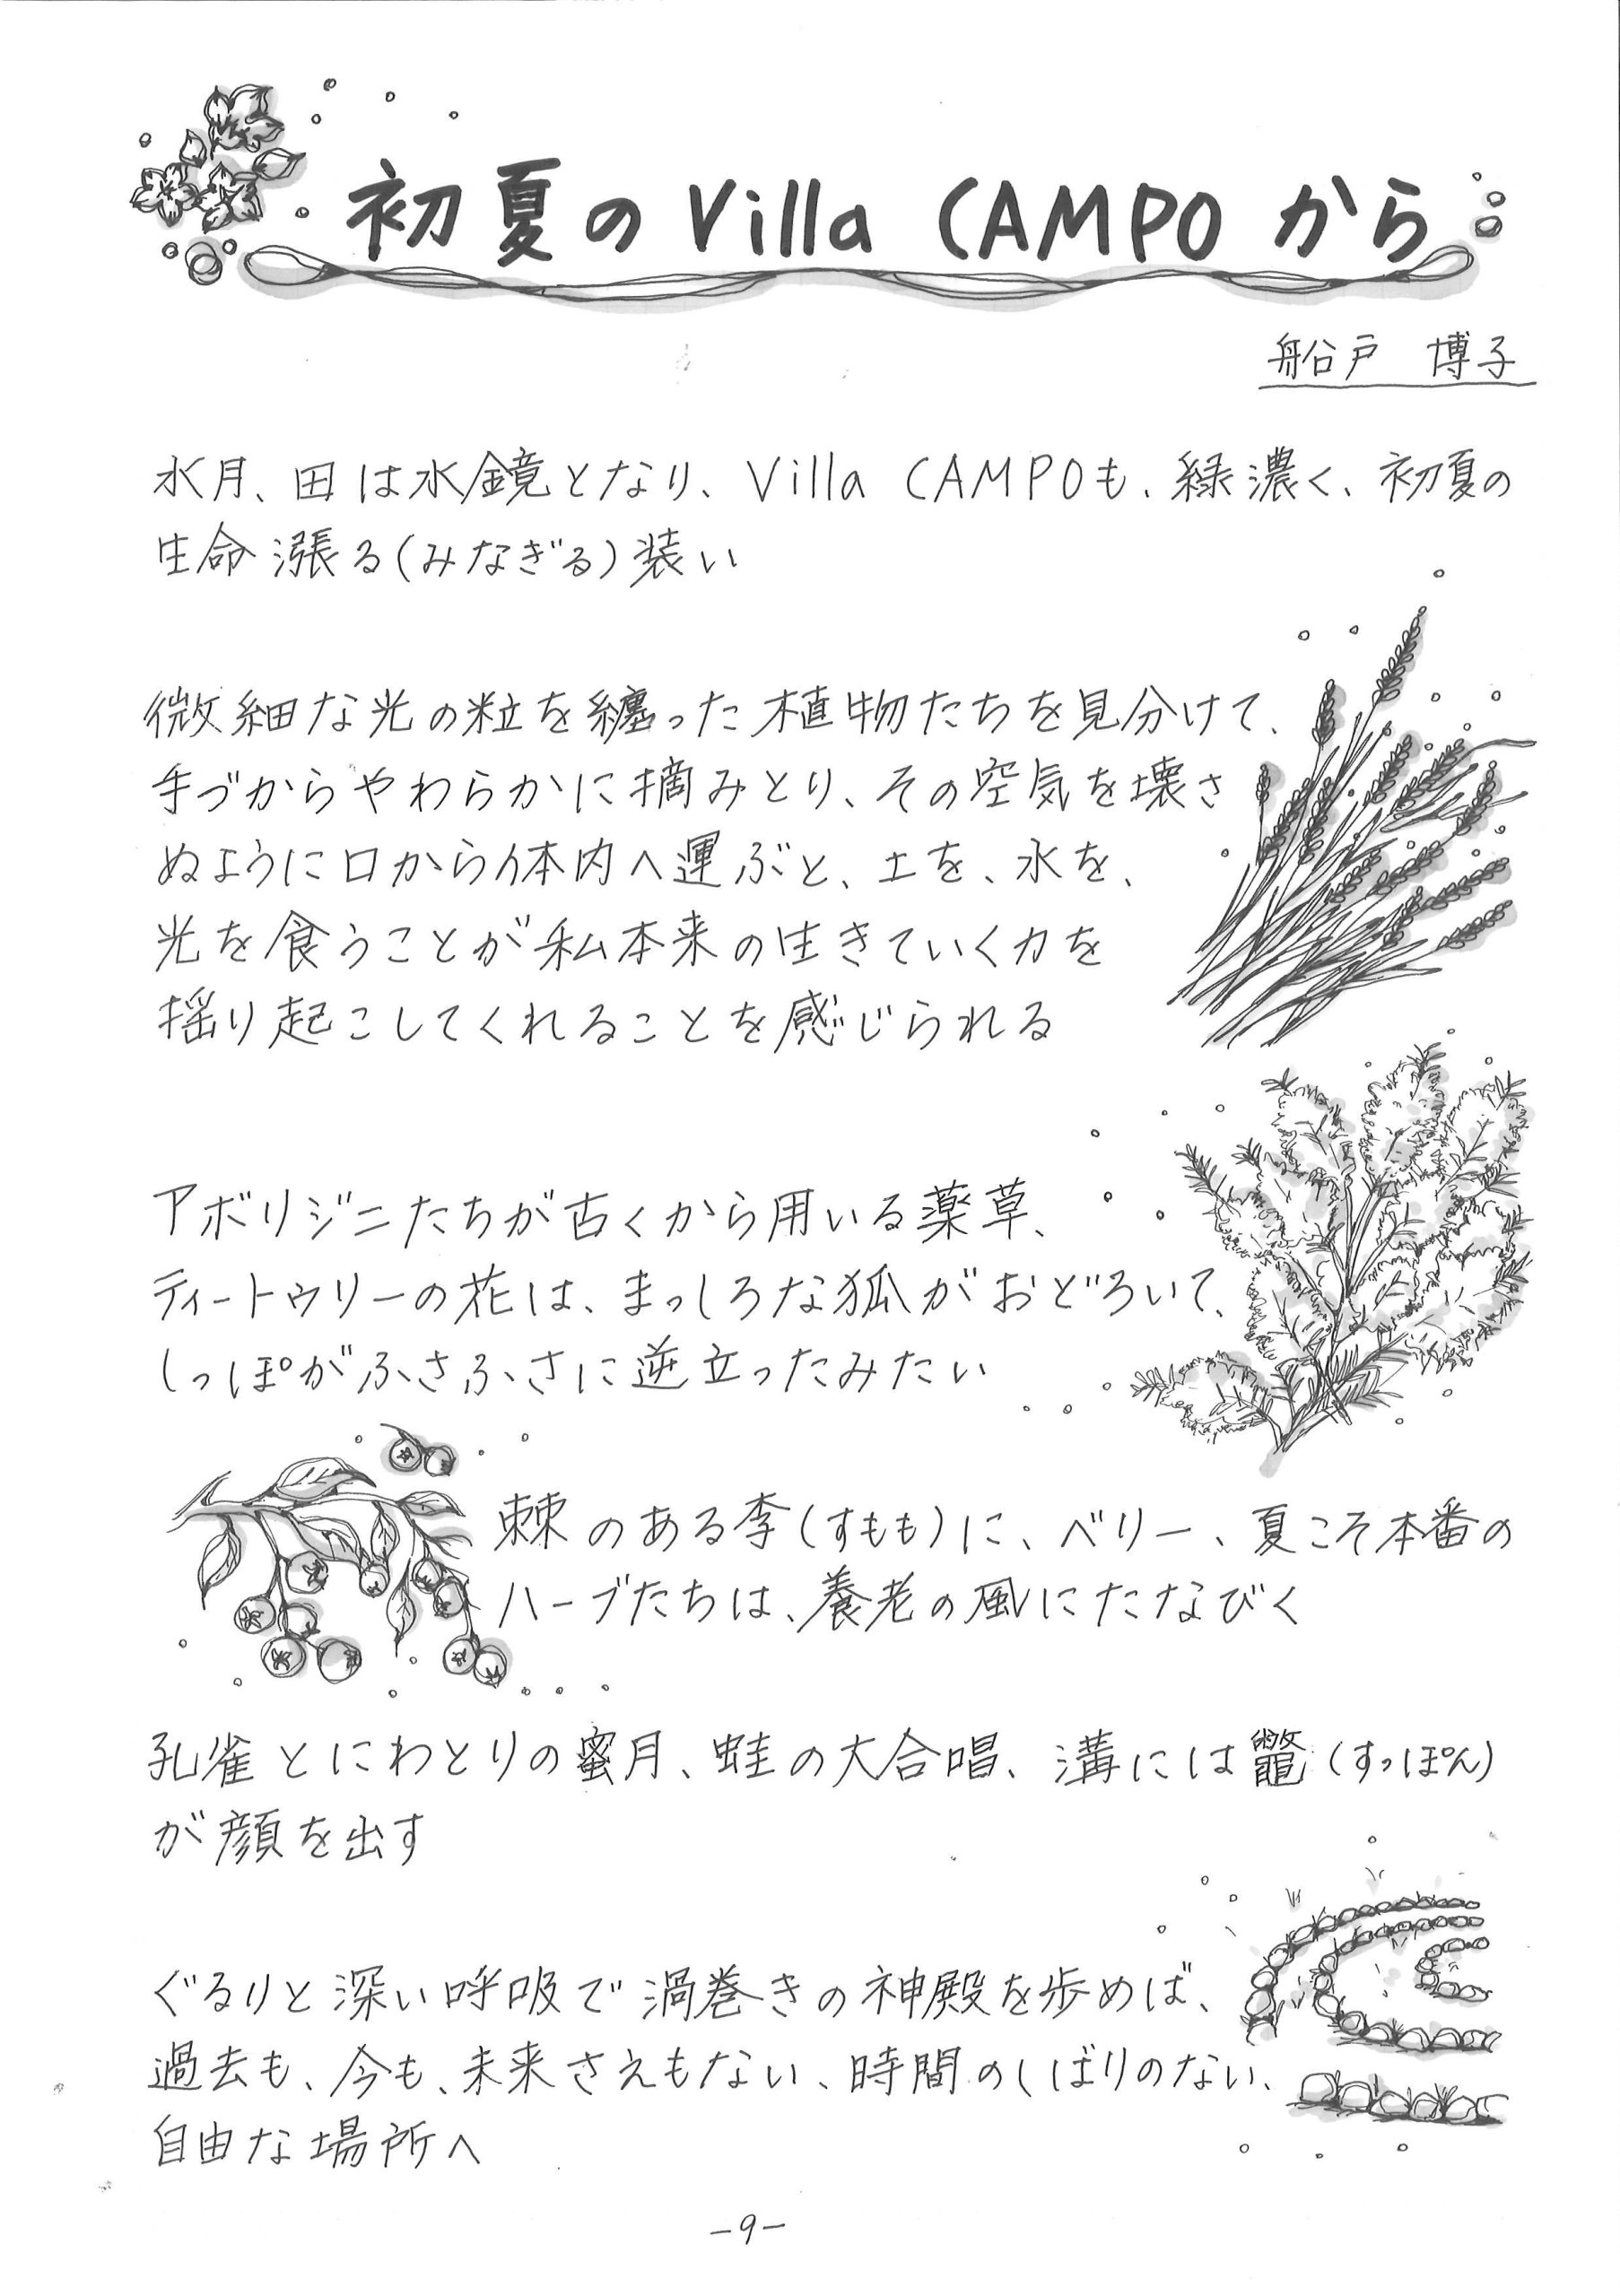 初夏の Villa CAMPO から
船戸 博子
水月、田は水鏡となり、Villa CAMPOも、緑濃く、初夏の
生命漲る(みなぎる)装い
微細な光の粒を纏った植物たちを見分けて、
手づからやわらかに摘みとり、その空気を壊さ
ぬように口から体内へ運ぶと、土を、水を、
光を食うことが私本来の生きていく力を
揺り起こしてくれることを感じられる
アボリジニたちが古くから用いる薬草、
ティートゥリーの花は、まっしろな狐がおどろいて、
しっぽがふさふさに逆立ったみたい
棘のある李(すもも)に、ベリー、夏こそ本番の
ハーブたちは、養老の風にたなびく
孔雀とにわとりの蜜月、蛙の大合唱、溝には鼈(すっぽん)
が顔を出す
ぐるりと深い呼吸で渦巻きの神殿を歩めば、
過去も、今も、未来さえもない、時間のしばりのない、
自由な場所へ
-9-